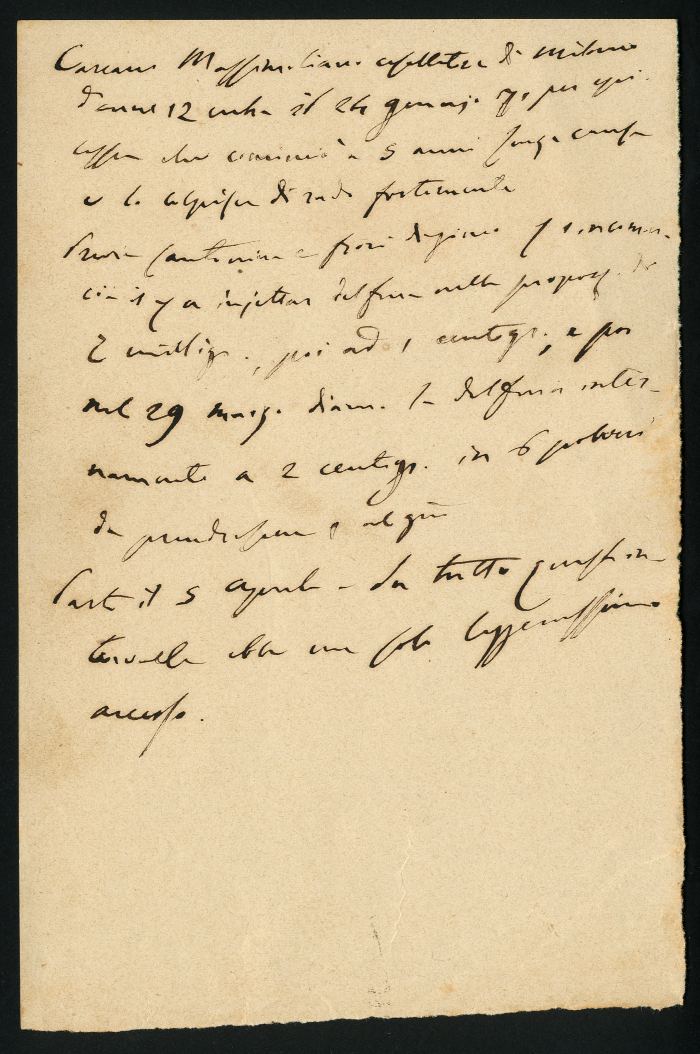 Carcano Massimiliano cappellettaio di Milano
d'anni 12 entra il 24 gennajo 79, per epi-
lessia che cominciò a 5 anni senza causa
e lo colpisce di rado fortemente
Prova santonina e fiori di zinco. Si incomin-
cia il 7 a injettar delfina nella proporz. di
2 milligr., poi ad 1 centigr., e poi
nel 29 marzo diam. la delfina inter-
namente a 2 centigr. in 6 polveri
da prendersene 1 al gno
Parte il 5 aprile - In tutto quest' in-
tervallo ebbe un solo leggerissimo
accesso.